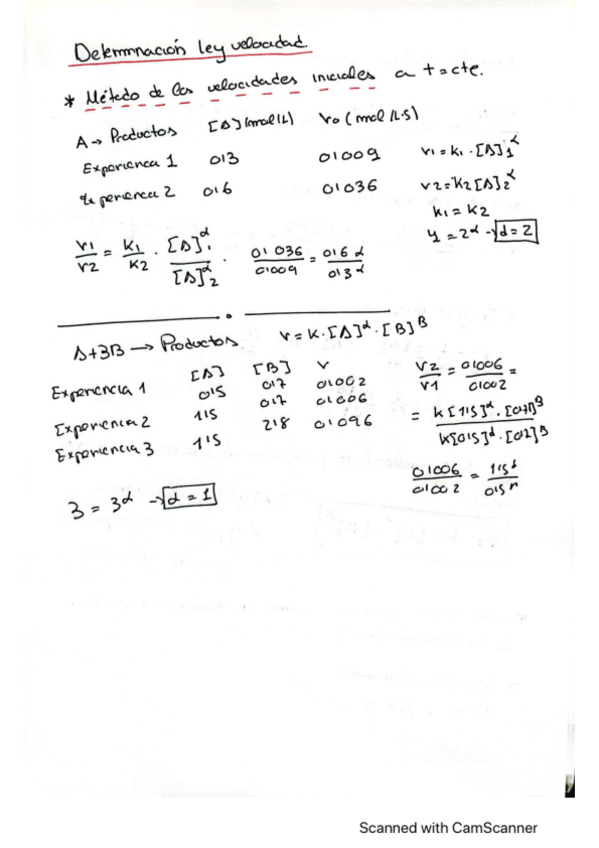 Determinación ley velocidad.
* Método de las velocidades iniciales a t=cte.
A → Productos [A](mol/L) v₀ (mol/L·S)
Experiencia 1 0'3 0'009 v₁=k₁·[A]₁^α
Experiencia 2 0'6 0'036 v₂=k₂[A]₂^α
k₁=k₂
4=2^α → α=2
v₁/v₂ = k₁/k₂ · [A]₁^α/[A]₂^α . 0'036/0'009 = 0'6^α/0'3^α
A+3B → Productos v=k·[A]^α·[B]^β
[A] [B] v
Experiencia 1 0'5 0'7 0'002
Experiencia 2 1'5 0'7 0'006
Experiencia 3 1'5 2'8 0'096
v₂/v₁ = 0'006/0'002 =
= k[1'5]^α·[0'7]^β/k[0'5]^α·[0'7]^β
0'006/0'002 = 1'5^α/0'5^α
3 = 3^α → α=1
Scanned with CamScanner